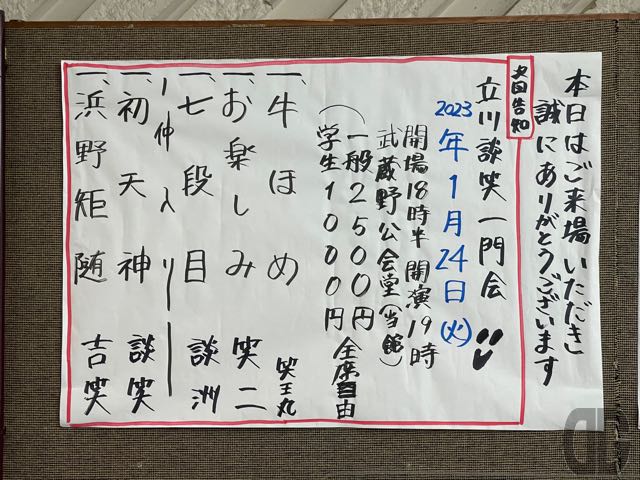 本日はご来場いただき
誠にありがとうございます
次回告知
立川談笑一門会
2023年1月24日(火)
開場18時半 開演19時
武蔵野公会堂(当館)
一般2500円
学生1000円
全席自由
一、牛ほめ 笑王丸
一、お楽しみ 笑二
一、七段目 談洲
仲入り
一、初天神 談笑
一、浜野矩随 吉笑